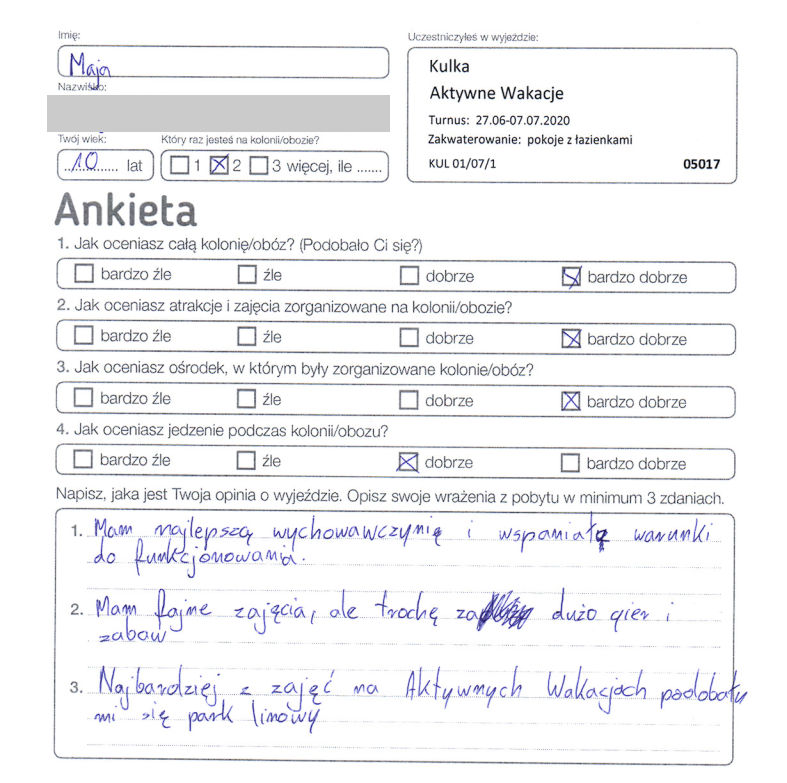 Imię:
Maja
Nazwisko:
Twój wiek:
10 lat
Który raz jesteś na kolonii/obozie?
1 2 3 więcej, ile .......
Uczestniczyłeś w wyjeździe:
Kulka
Aktywne Wakacje
Turnus: 27.06-07.07.2020
Zakwaterowanie: pokoje z łazienkami
KUL 01/07/1 05017
Ankieta
1. Jak oceniasz całą kolonię/obóz? (Podobało Ci się?)
bardzo źle źle dobrze bardzo dobrze
2. Jak oceniasz atrakcje i zajęcia zorganizowane na kolonii/obozie?
bardzo źle źle dobrze bardzo dobrze
3. Jak oceniasz ośrodek, w którym były zorganizowane kolonie/obóz?
bardzo źle źle dobrze bardzo dobrze
4. Jak oceniasz jedzenie podczas kolonii/obozu?
bardzo źle źle dobrze bardzo dobrze
Napisz, jaka jest Twoja opinia o wyjeździe. Opisz swoje wrażenia z pobytu w minimum 3 zdaniach.
1. Mam najlepszą wychowawczynię i wspaniałę warunki
do funkcjonowania.
2. Mam fajne zajęcia, ale trochę za dużo gier i
zabaw
3. Najbardziej z zajęć na Aktywnych Wakacjach podobały
mi się park linowy